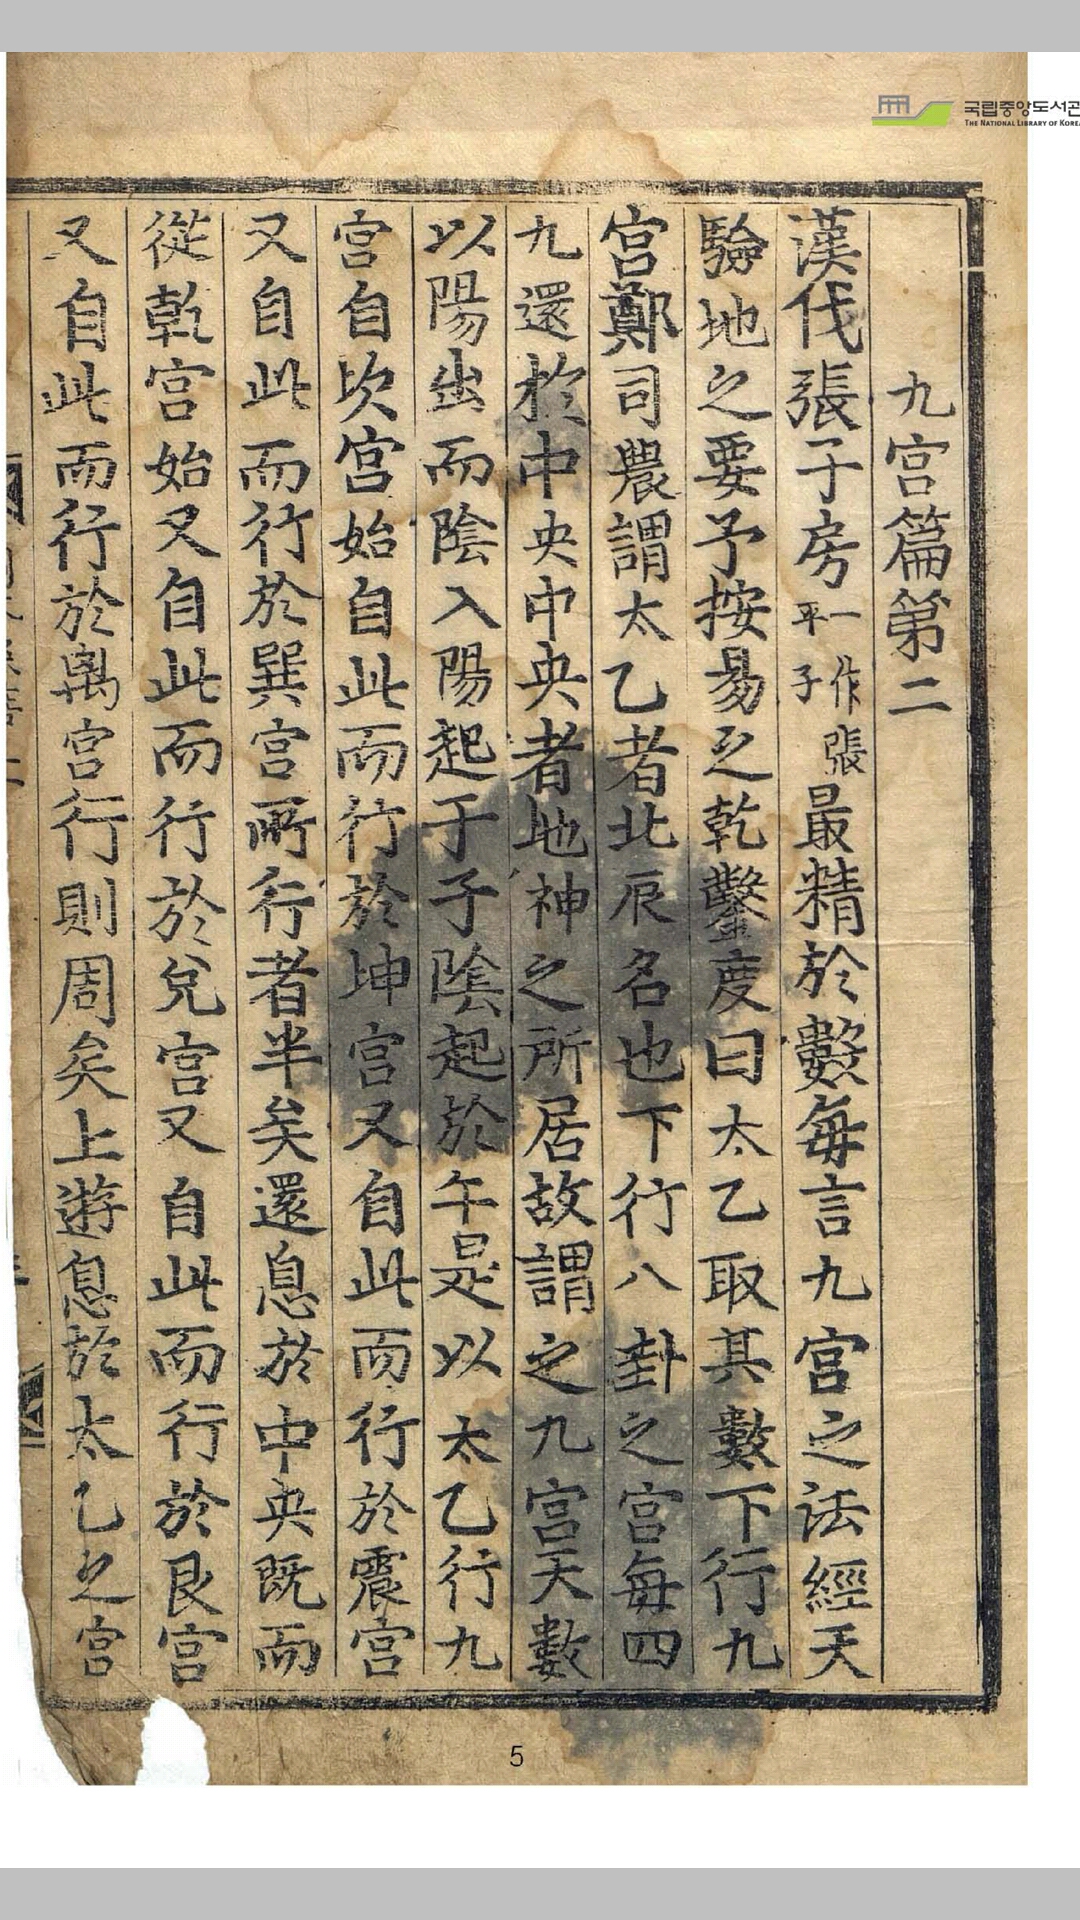 국립중앙도서관
THE NATIONAL LIBRARY OF KOREA
九宮篇第二
漢伐張子房一作張平子最精於數每言九宮之法經天
驗地之要予按易之乾鑿度曰太乙取其數下行九
宮鄭司農謂太乙者北辰名也下行八卦之宮每四
九還於中央中央者地神之所居故謂之九宮天數
以陽出而陰入陽起于子陰起於午是以太乙行九
宮自坎宮始自此而行於坤宮又自此而行於震宮
又自此而行於巽宮所行者半矣還息於中央既而
從乾宮始又自此而行於兌宮又自此而行於艮宮
又自此而行於离宮行則周矣上遊息於太乙之宮
5